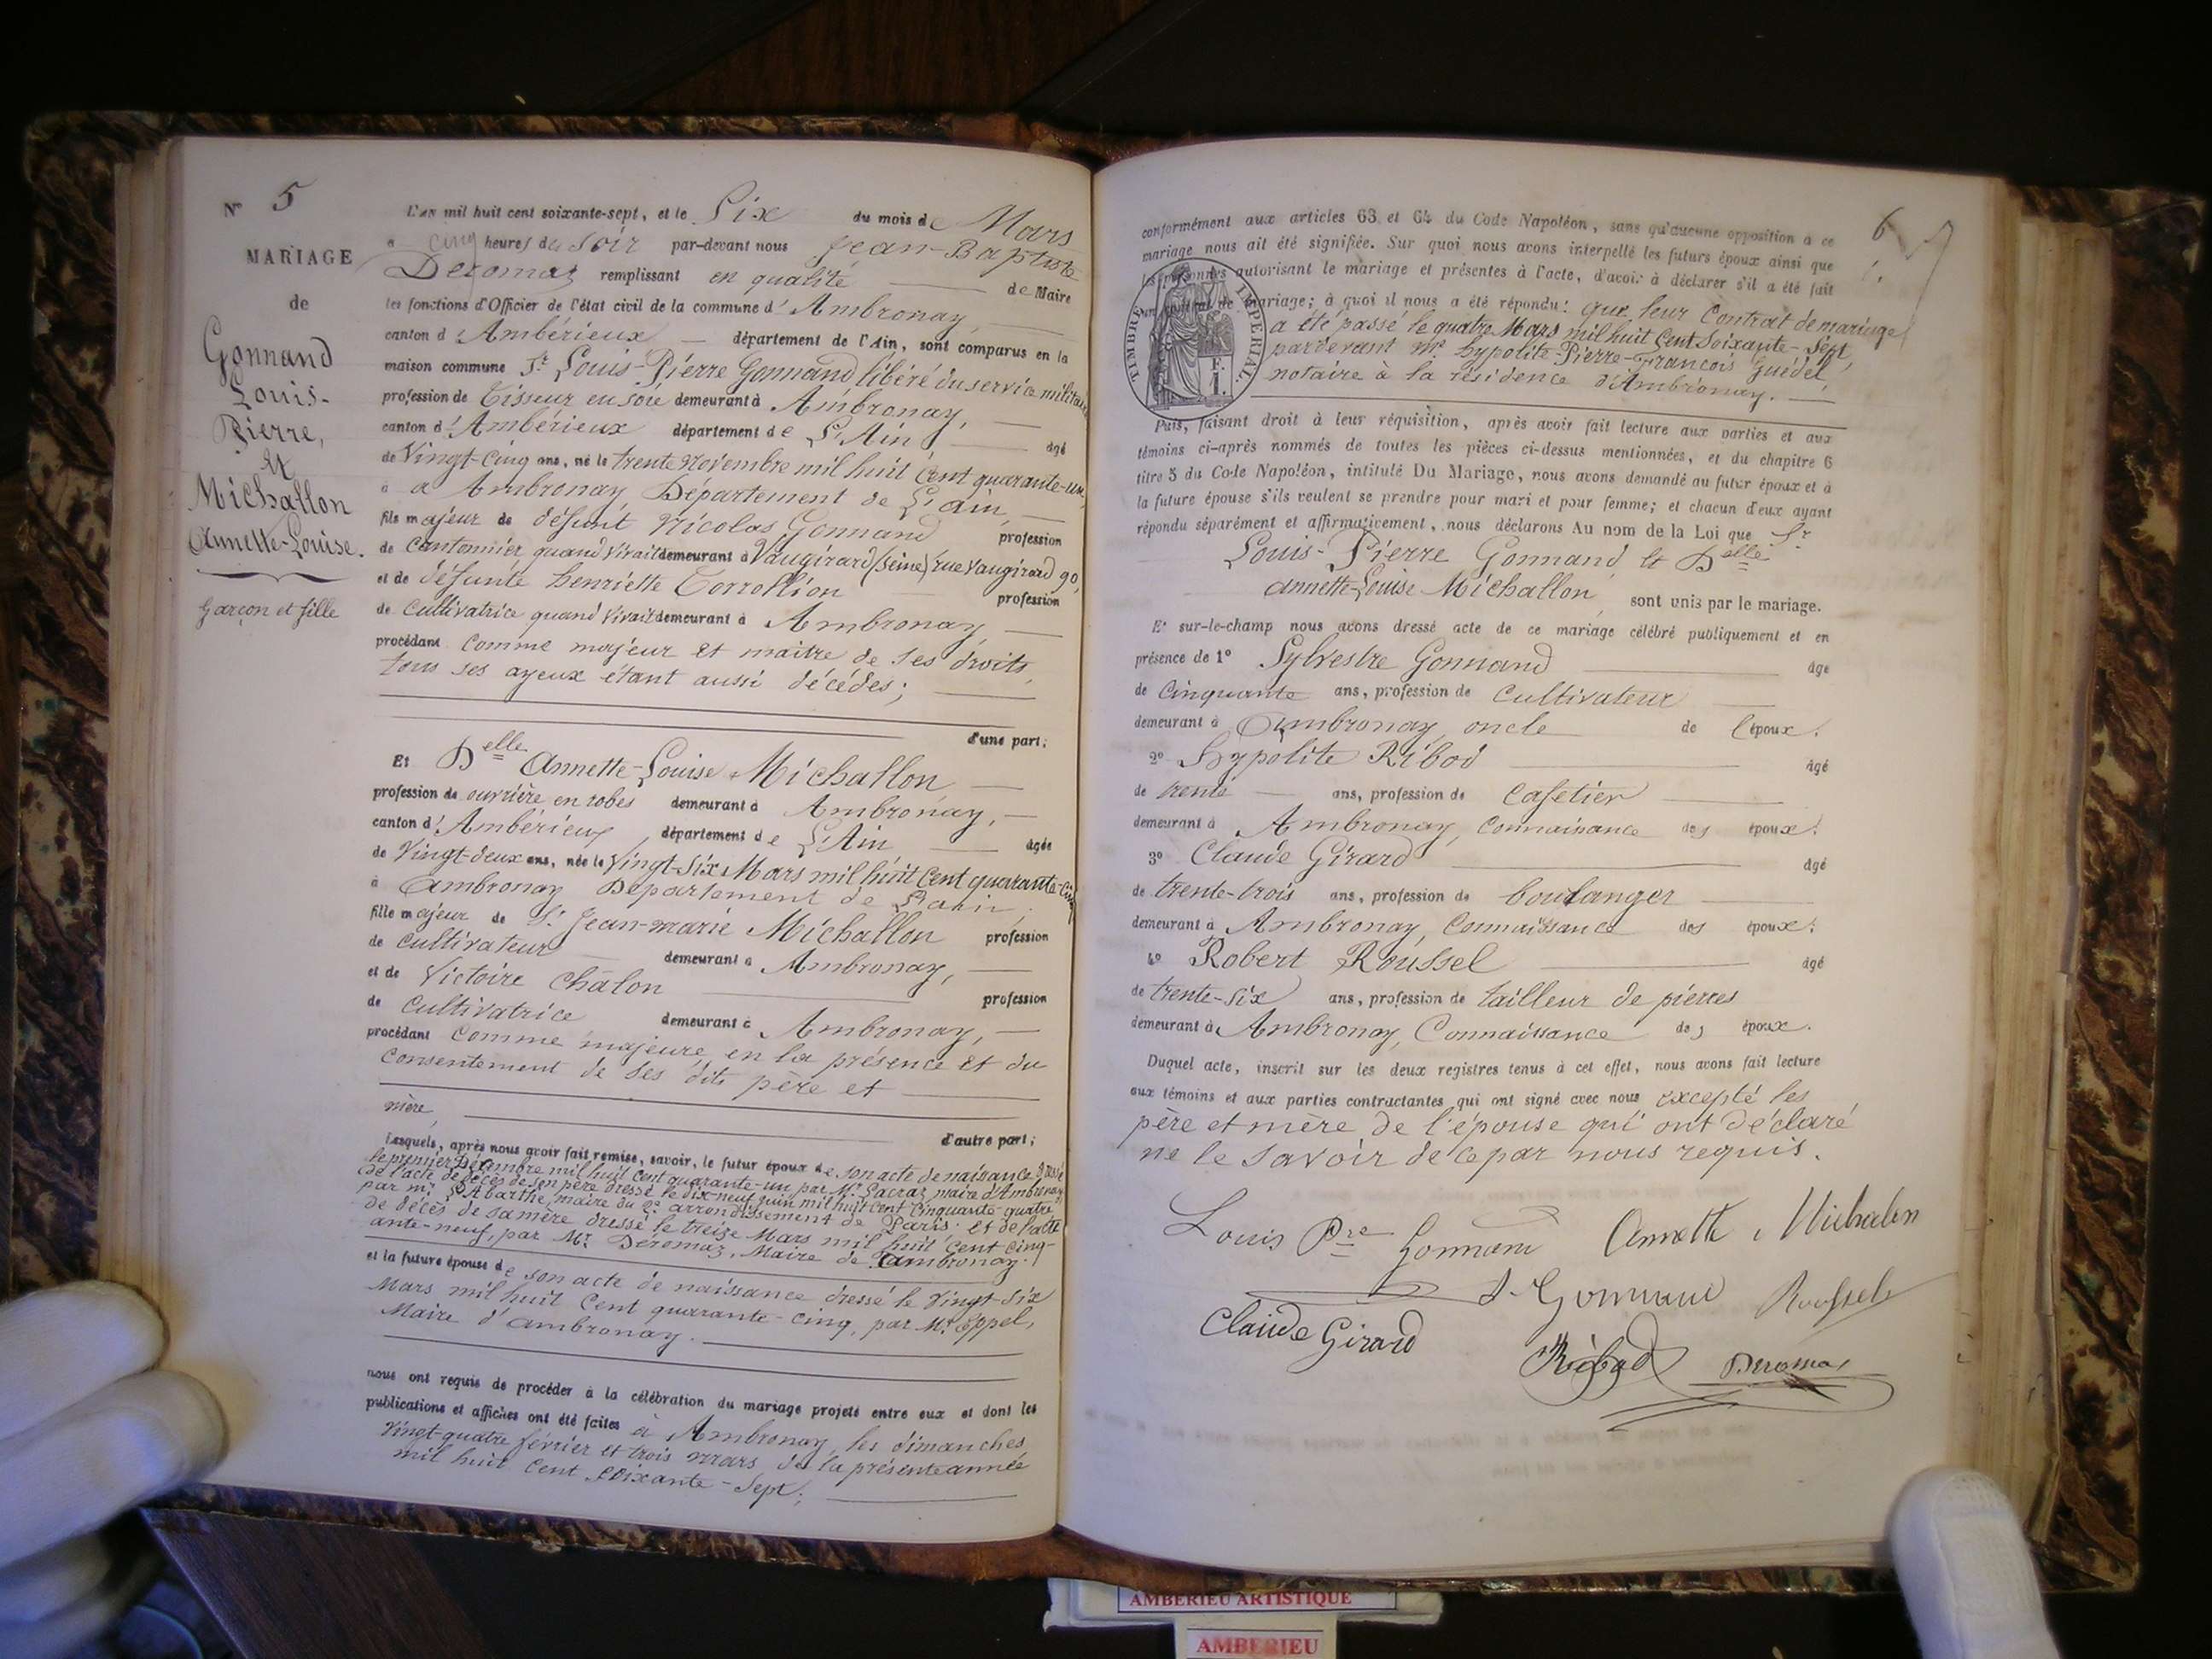 N° 5
MARIAGE
de
Gonnand
Louis-
Pierre,
et
Michallon
Annette-Louise.
Garçon et fille
L'an mil huit cent soixante-sept, et le Six du mois de Mars
a cinq heures du Soir par-devant nous Jean-Baptiste
Deromas remplissant en qualité de Maire
les fonctions d'Officier de l'état civil de la commune d'Ambronay,
canton d'Ambérieux département de l'Ain, sont comparus en la
maison commune Sr. Louis-Pierre Gonnand libéré du service militaire
profession de Tisseur en soie demeurant à Ambronay,
canton d'Ambérieux département de L'Ain âgé
de Vingt-cinq ans, né le trente Novembre mil huit Cent quarante-un,
à a Ambronay Département de L'ain,
fils majeur de défunt Nicolas Gonnand profession
de Cantonnier quand vivait demeurant à Vaugirard (Seine) rue Vaugirard 90,
et de défunte henriette Corrollion profession
de Cultivatrice quand vivait demeurant à Ambronay,
procédant Comme majeur et maître de ses droits,
tous ses ayeux étant aussi décédés;
d'une part;
Et Delle Annette-Louise Michallon
profession de ouvrière en robes demeurant à Ambronay,
canton d'Ambérieux, département de L'Ain âgée
de Vingt-deux ans, née le Vingt-Six Mars mil huit Cent quarante-cinq
à Ambronay Département de L'ain.
fille majeur de Sr. Jean-marie Michallon profession
de Cultivateur demeurant à Ambronay,
et de Victoire Châlon profession
de Cultivatrice demeurant à Ambronay,
procédant Comme majeure en la présence et du
Consentement de ses dits père et
mère,
d'autre part;
Lesquels, après nous avoir fait remise, savoir, le futur époux de son acte de naissance dressé
le premier Décembre mil huit Cent quarante-un par Mr. Lacraz maire d'Ambronay
de l'acte de décès de son père dressé le dix-neuf juin mil huit Cent Cinquante-quatre
par Mr. Abarthe, maire du 2e. arrondissement de Paris: et de l'acte
de décès de sa mère dressé le treize Mars mil huit Cent Cinq-
ante-neuf, par Mr. Deromas, Maire de Cambronay.
et la future épouse de son acte de naissance dressé le Vingt-Six
Mars mil huit Cent quarante-cinq, par Mr. Eppel,
Maire d'ambronay.
nous ont requis de procéder à la célébration du mariage projeté entre eux et dont les
publications et affiches ont été faites à Ambronay, les dimanches
Vingt-quatre février et trois mars de la présente année
mil huit Cent Soixante-Sept;
6
conformément aux articles 63 et 64 du Code Napoléon, sans qu'aucune opposition à ce
mariage nous ait été signifiée. Sur quoi nous avons interpellé les futurs époux ainsi que
les personnes autorisant le mariage et présentes à l'acte, d'avoir à déclarer s'il a été fait
un contrat de mariage; à quoi il nous a été répondu: que leur Contrat de mariage
a été passé le quatre Mars mil huit Cent Soixante-Sept,
pardevant Mr. hypolite-Pierre-François Guédel,
notaire à la résidence d'Ambronay.
TIMBRE IMPERIAL.
Puis, faisant droit à leur réquisition, après avoir fait lecture aux parties et aux
témoins ci-après nommés de toutes les pièces ci-dessus mentionnées, et du chapitre 6
titre 5 du Code Napoléon, intitulé Du Mariage, nous avons demandé au futur époux et à
la future épouse s'ils veulent se prendre pour mari et pour femme; et chacun d'eux ayant
répondu séparément et affirmativement, nous déclarons Au nom de la Loi que Sr.
Louis-Pierre Gonnand, et Delle
Annette-Louise Michallon, sont unis par le mariage.
Et sur-le-champ nous avons dressé acte de ce mariage célébré publiquement et en
présence de 1° Sylvestre Gonnand âgé
de Cinquante ans, profession de Cultivateur
demeurant à Ambronay, oncle de l'époux.
2° Hypolite Ribod âgé
de trente ans, profession de Cafetier
demeurant à Ambronay, Connaissance des époux.
3° Claude Girard âgé
de trente-trois ans, profession de boulanger
demeurant à Ambronay, Connaissance des époux.
4° Robert Roussel âgé
de trente-six ans, profession de tailleur de pierres
demeurant à Ambronay, Connaissance des époux.
Duquel acte, inscrit sur les deux registres tenus à cet effet, nous avons fait lecture
aux témoins et aux parties contractantes qui ont signé avec nous excepté les
père et mère de l'épouse qui ont déclaré
ne le savoir de ce par nous requis.
Louis Pre Gonnand Annette Michalon
S. Gonnand Roussel
Claude Girard
Ribod Deromas
AMBERIEU ARTISTIQUE
AMBERIEU